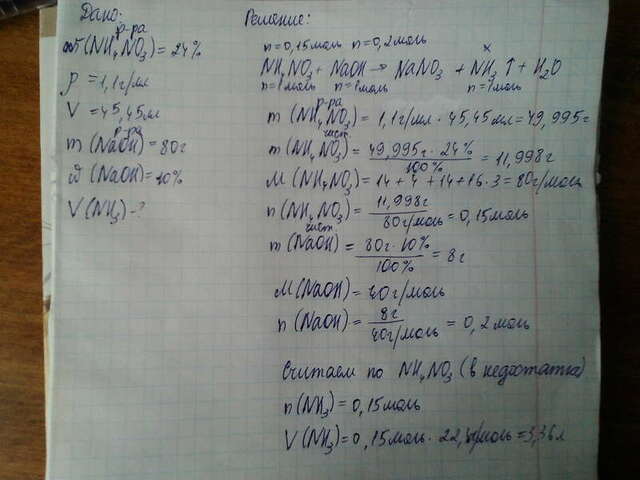 Дано:
р-ра
ω(NH4NO3) = 24%
ρ = 1,1 г/мл
V = 45,45 мл
р-ра
m(NaOH) = 80г
ω(NaOH) = 10%
V(NH3) - ?
Решение:
n=0,15моль n=0,2моль x
NH4NO3 + NaOH → NaNO3 + NH3 ↑ + H2O
n=1моль n=1моль n=1моль
р-ра
m(NH4NO3) = 1,1г/мл · 45,45мл = 49,995г
чист.
m(NH4NO3) = 49,995г · 24% / 100% = 11,998г
M(NH4NO3) = 14 + 4 + 14 + 16 · 3 = 80г/моль
n(NH4NO3) = 11,998г / 80г/моль = 0,15моль
чист.
m(NaOH) = 80г · 10% / 100% = 8г
M(NaOH) = 40г/моль
n(NaOH) = 8г / 40г/моль = 0,2 моль
Считаем по NH4NO3 (в недостатке)
n(NH3) = 0,15моль
V(NH3) = 0,15моль · 22,4л/моль = 3,36л